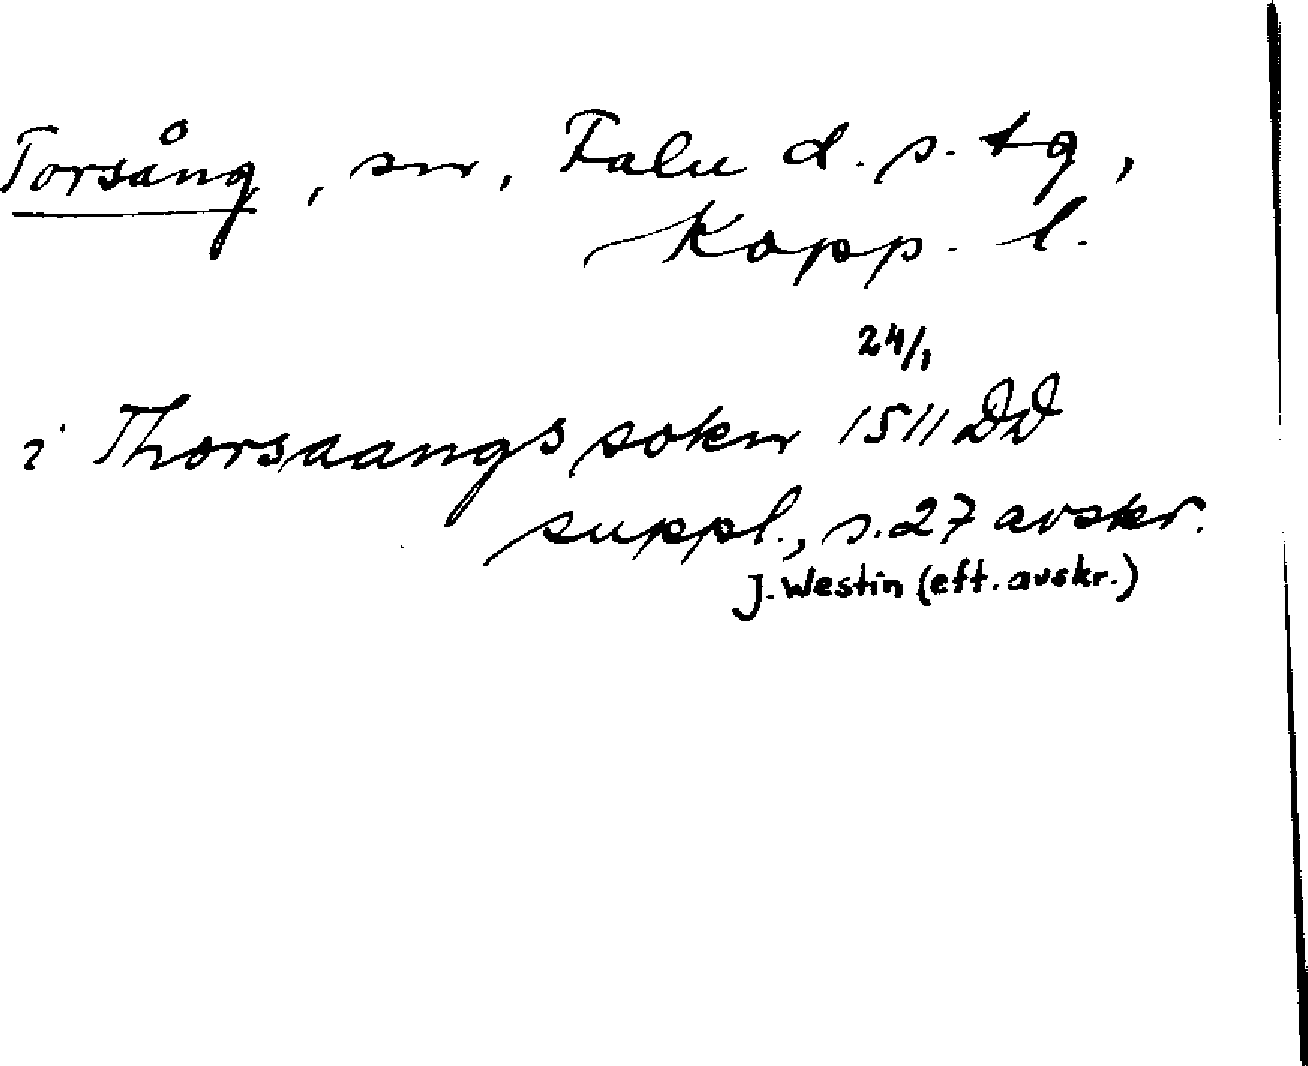 Torsång, sn, Falu d. s. tg,
Kopp. l.
24/1
i Thorsaangs sokn 1511 DD
suppl., s. 27 avskr.
J. Westin (eft. avskr.)